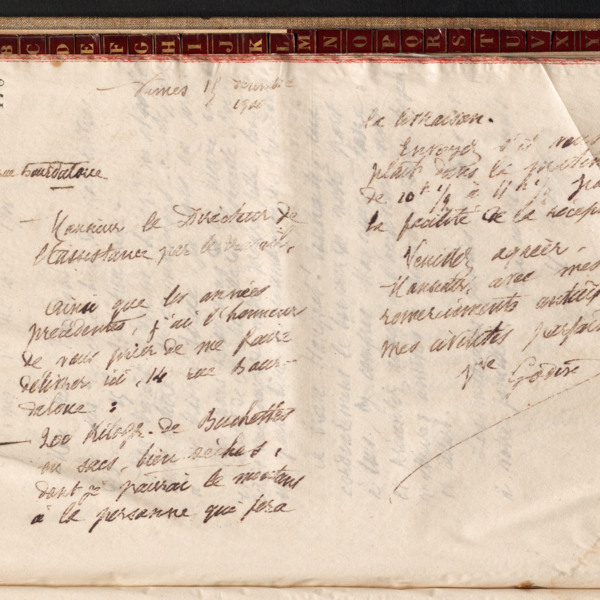 B C D E F G H I J K L M N O P Q R S T U V X Y
Nimes 15 décembre
1910
rue Bourdaloue
Monsieur le Directeur de
l'Assistance par le travail,
Ainsi que les années
précédentes, j'ai l'honneur
de vous prier de me faire
délivrer ici, 14 rue Bour-
daloue :
200 Kilogr. de Buchettes
en sacs, bien sèches,
dont je paierai le montant
à la personne qui fera
la livraison.
Envoyez s'il vous
plait dans la
de 10h ½ à 11h ½
la facilité de la récep
Veuillez agréer,
Monsieur, avec mes
remerciements antici
mes civilités parfai
Vve